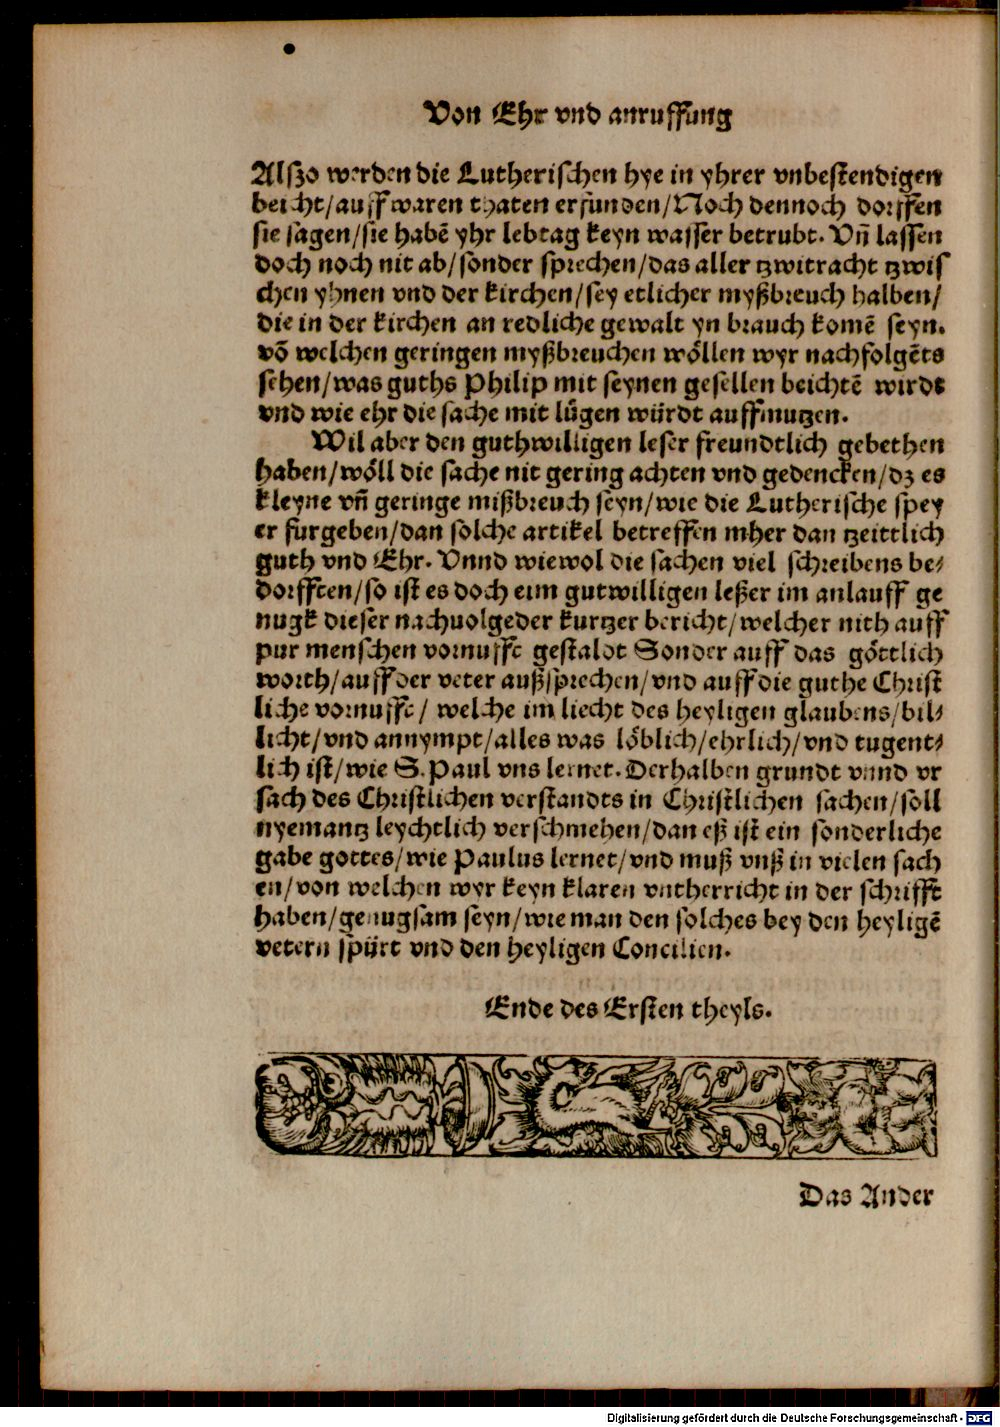 Von Ehr vnd anruffung
Alſzo werden die Lutheriſchen hye in yhrer vnbeſtendigen
beicht/auff waren thaten erfunden/Noch dennoch dorffen
ſie ſagen/ſie habē yhr lebtag keyn waſſer betrubt. Vn̄ laſſen
doch noch nit ab/ſonder ſprechen/das aller tzwitracht tzwiſ
chen yhnen vnd der kirchen/ſey etlicher myßbreuch halben/
die in der kirchen an redliche gewalt yn brauch komē ſeyn.
vō welchen geringen myßbreuchen wöllen wyr nachfolgēts
ſehen/was guths Philip mit ſeynen geſellen beichtē wirdt
vnd wie ehr die ſache mit lügen würdt auffmutzen.
Wil aber den guthwilligen leſer freundtlich gebethen
haben/wöll die ſache nit gering achten vnd gedencken/dz es
kleyne vn̄ geringe mißbreuch ſeyn/wie die Lutheriſche ſpey
er furgeben/dan ſolche artikel betreffen mher dan tzeittlich
guth vnd Ehr. Vnnd wiewol die ſachen viel ſchreibens be⸗
dorfften/ſo iſt es doch eim gutwilligen leßer im anlauff ge
nugk dieſer nachuolgeder kurtzer bericht/welcher nith auff
pur menſchen vornufft geſtaldt Sonder auff das göttlich
worth/auff der veter außſprechen/vnd auff die guthe Chriſt
liche vornufft/ welche im liecht des heyligen glaubens/bil⸗
licht/vnd annympt/alles was löblich/ehrlich/vnd tugent⸗
lich iſt/wie S. Paul vns lernet. Derhalben grundt vnnd vr
ſach des Chriſtlichen verſtandts in Chriſtlichen ſachen/ſoll
nyemantz leychtlich verſchmehen/dan eß iſt ein ſonderliche
gabe gottes/wie Paulus lernet/vnd muß vnß in vielen ſach
en/von welchen wyr keyn klaren vntherricht in der ſchrifft
haben/genugſam ſeyn/wie man den ſolches bey den heyligē
vetern ſpürt vnd den heyligen Concilien.
Ende des Erſten theyls.
Das Ander
Digitalisierung gefördert durch die Deutsche Forschungsgemeinschaft - DFG